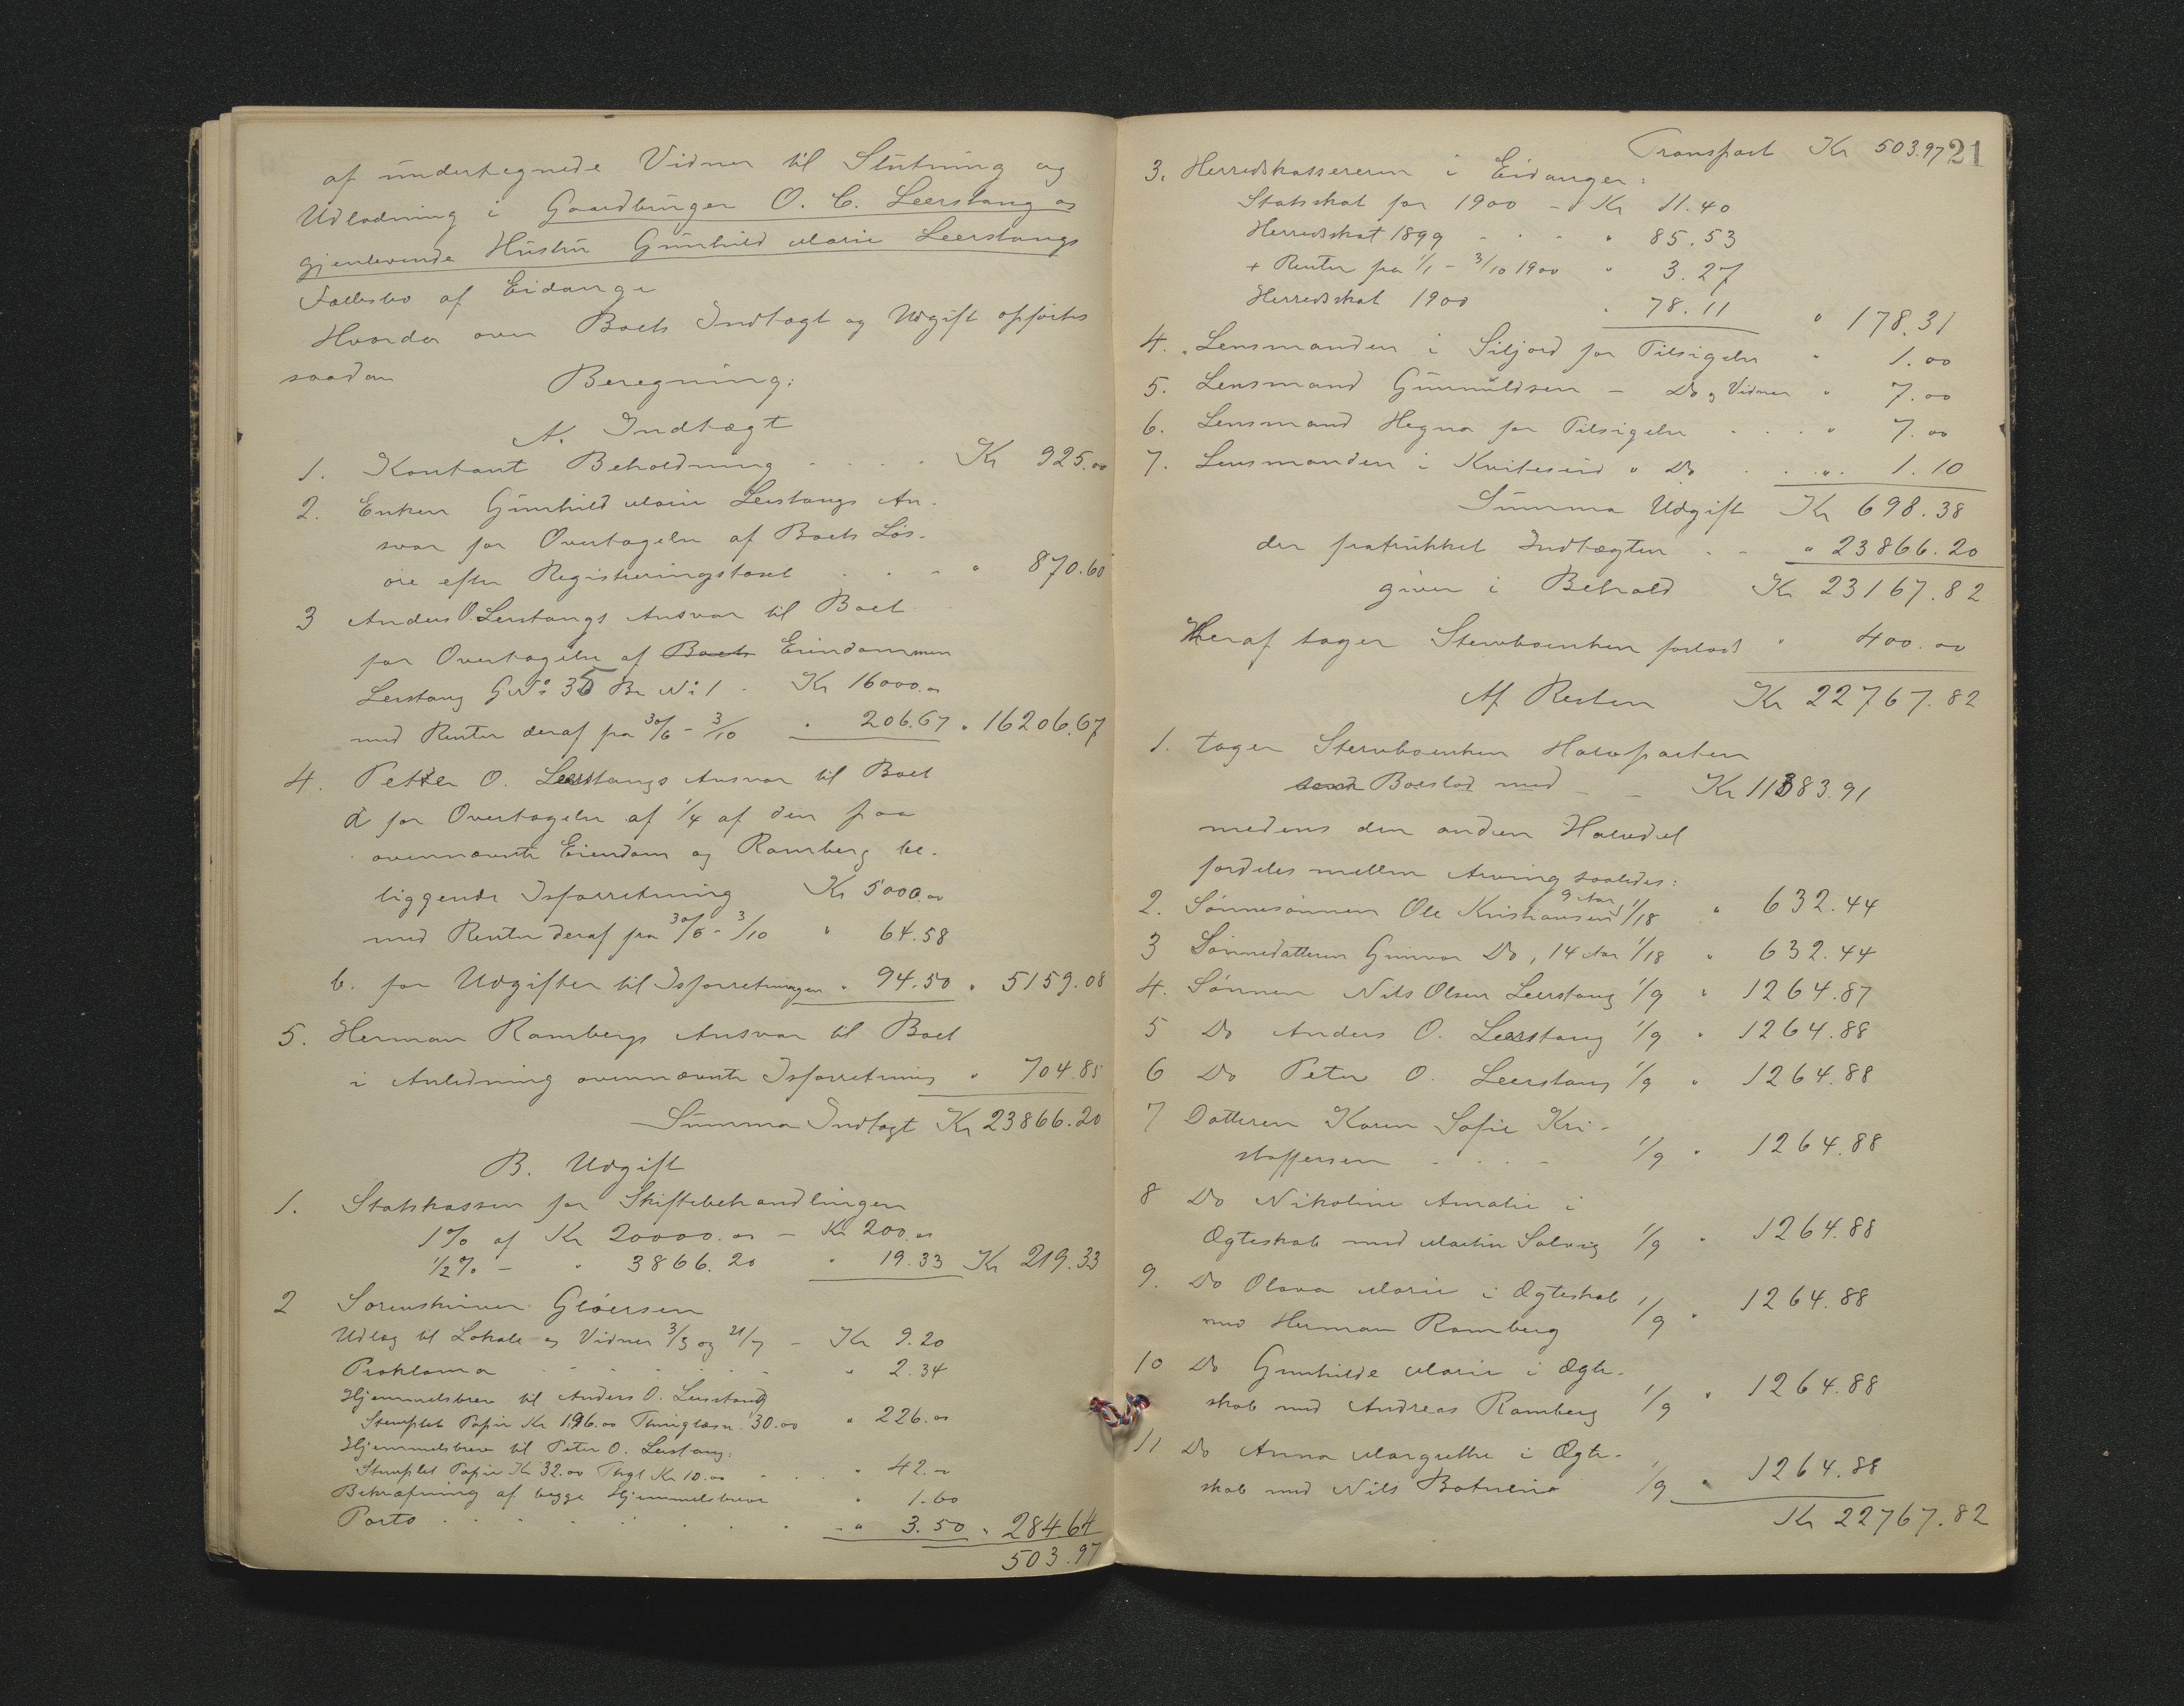 af undertegnede Vidner til Slutning og
Udlodning i Gaardbruger O. C. Leerstang og
gjenlevende Hustru Gunhild Marie Leerstangs
Fællesbo af Eidanger
Hvorda over Boets Indtægt og Udgift opførtes
saadan
Beregning:
A. Indtægt
1. Kontant Beholdning . . . . Kr 925.00
2. Enken Gunhild Marie Leerstangs An-
svar for Overtagelse af Boets Løs-
øre efter Registreringstaxt . . - " 870.60
3 Anders O. Lerstangs Ansvar til Boet
for Overtagelse af Boets Eiendommen
Lerstang GNo: 35 Br No: 1 . Kr 16000.00
med Renter deraf fra 30/6 - 3/10 " 206.67 " 16206.67
4. Petter O. Leerstangs Ansvar til Boet
a for Overtagelse af 1/4 af den paa
ovennævnte Eiendom og Ramberg be-
liggende Isforretning Kr 5000.00
med Renter deraf fra 30/6 - 3/10 " 64.58
b. for Udgifter til Isforretningen " 94.50 " 5159.08
5. Herman Rambergs Ansvar til Boet
i Anledning ovennævnte Isforretning " 704.85
Summa Indtægt Kr 23866.20
B. Udgift
1. Statskassen for Skiftebehandlingen
1% af Kr 20000.00 - Kr 200.00
1/2% - " 3866.20 " 19.33 Kr 219.33
2 Sorenskriver Gløersen
Udlæg til Lokale og Vidner 3/5 og 21/7 - Kr 9.20
Proklama - - - - - - " 2.34
Hjemmelsbrev til Anders O. Leerstang
Stemplet Papir Kr 196.00 Thinglæsn. 30.00 " 226.00
Hjemmelsbrev til Peter O. Lerstang:
Stemplet Papir Kr 32.00 Thgl Kr 10.00 . . . " 42.00
Bekræftning af begge Hjemmelsbreve " 1.60
Porto . . . . . . . . - " 3.50 " 284.64
503.97
21
Transport Kr 503.97
3. Herredskassereren i Eidanger:
Statsskat for 1900 - Kr 11.40
Herredsskat 1899 - - - " 85.53
+ Renter fra 1/1 - 3/10 1900 " 3.27
Herredsskat 1900 " 78.11 " 178.31
4. Lensmanden i Siljord for Tilsigelse " 1.00
5. Lensmand Gunnuldsen - Do og Vidner " 7.00
6. Lensmand Hegna for Tilsigelse . . . " 7.00
7. Lensmanden i Kviteseid " Do . . . " 1.10
Summa Udgift Kr 698.38
der fratrukket Indtægten . - " 23866.20
giver i Behold Kr 23167.82
Heraf tager Stervboenken forlods " 400.00
Af Resten Kr 22767.82
1. tager Stervboenken Halvparten
Boeslod med - - Kr 11383.91
medens den anden Halvdel
fordeles mellem Arving saaledes:
2. Sønnesønnen Ole Kristiansen 9 Aar 1/18 " 632.44
3 Sønnedatteren Gunvor Do, 14 Aar 1/18 " 632.44
4. Sønnen Nils Olsen Leerstang 1/9 " 1264.87
5 Do Anders O. Leerstang 1/9 " 1264.88
6 Do Peter O. Leerstang 1/9 " 1264.88
7 Datteren Karen Sofie Kri-
stoffersen . . . - 1/9 " 1264.88
8 Do Nikoline Amalie i
Ægteskab med Martin Solvig 1/9 " 1264.88
9. Do Olava Marie i Ægteskab
med Herman Ramberg 1/9 " 1264.88
10 Do Gunhilde Marie i Ægte-
skab med Andreas Ramberg 1/9 " 1264.88
11 Do Anna Margrethe i Ægte-
skab med Nils 1/9 " 1264.88
Kr 22767.82